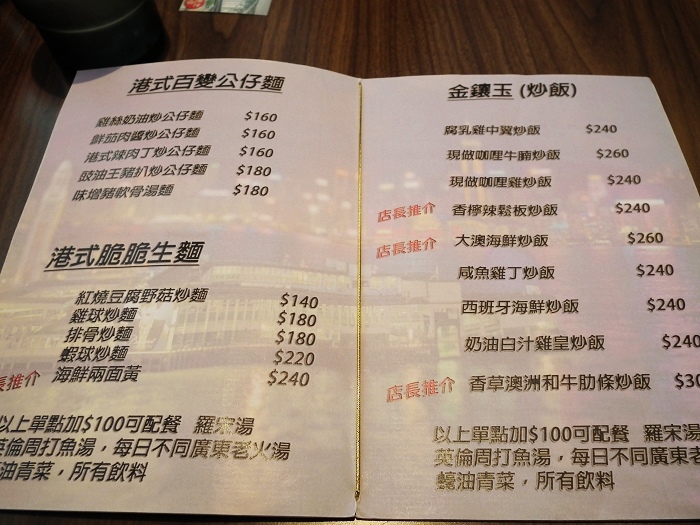 港式百變公仔麵
雞絲奶油炒公仔麵 $160
鮮茄肉醬炒公仔麵 $160
港式辣肉丁炒公仔麵 $160
豉油王豬扒炒公仔麵 $180
味增豬軟骨湯麵 $180
港式脆脆生麵
紅燒豆腐野菇炒麵 $140
雞球炒麵 $180
排骨炒麵 $180
蝦球炒麵 $220
長推介 海鮮兩面黃 $240
以上單點加$100可配餐 羅宋湯
英倫周打魚湯，每日不同廣東老火湯
蠔油青菜，所有飲料
金鑲玉 (炒飯)
腐乳雞中翼炒飯 $240
現做咖哩牛腩炒飯 $260
現做咖哩雞炒飯 $240
店長推介 香檸辣鬆板炒飯 $240
店長推介 大澳海鮮炒飯 $260
咸魚雞丁炒飯 $240
西班牙海鮮炒飯 $240
奶油白汁雞皇炒飯 $240
店長推介 香草澳洲和牛肋條炒飯 $30
以上單點加$100可配餐 羅宋湯
英倫周打魚湯，每日不同廣東老
蠔油青菜，所有飲料